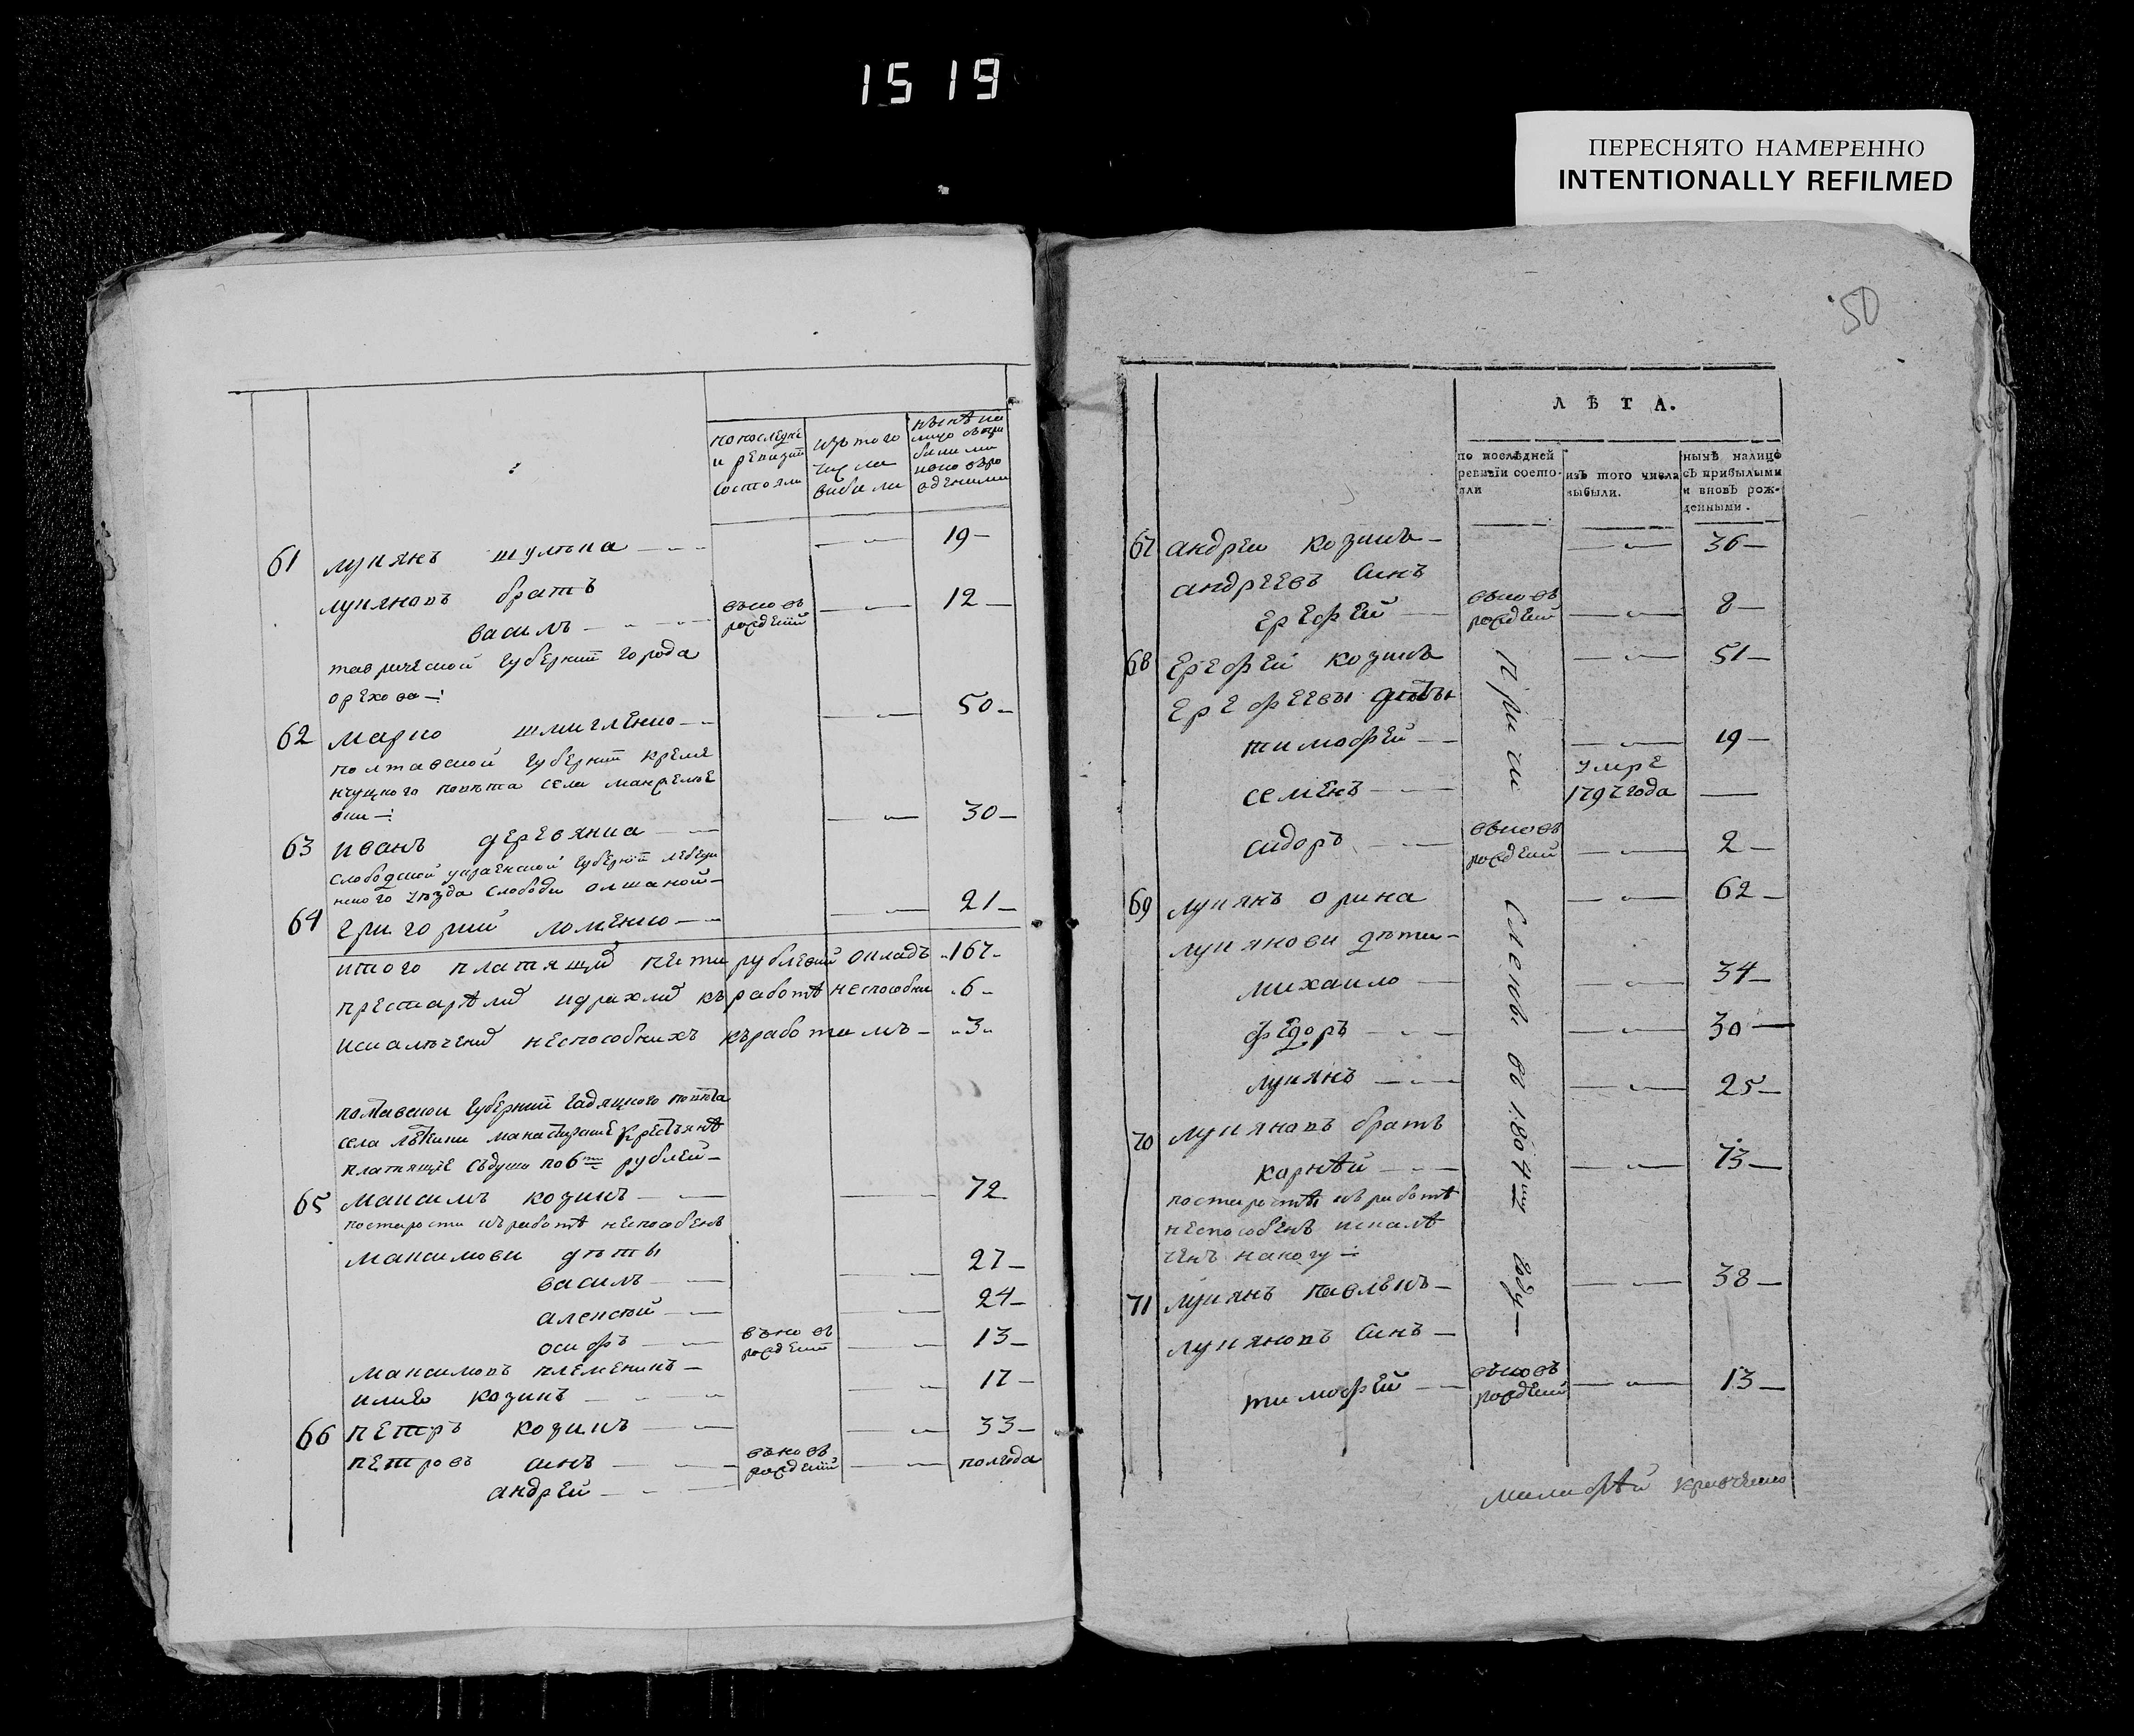 1519
ПЕРЕСНЯТО НАМЕРЕННО
INTENTIONALLY REFILMED
попослѣдне
и ревизіи
состояли
изъ того
числа
вибили
нынѣ на
лицо съ при
били ми
61 лукянъ шулика 19
лукяновъ братъ
василъ вьновъ рожденій 12
таврической губерніи города
орехова
62 марко 50
полтавской губерніи креме
нчуцкого повѣта села
63 иванъ деревянка 30
слободской украенской губерніи лебеди
нского уѣзда слободи олшаной
64 григорий ломенко 21
итого платящий пети рублевий окладъ 167
престарѣлий идрахлий къ работѣ неспособни 6
искалѣчений неспособнихъ къработи мъ 3
полтавской губерний гадяцкого повѣта
села манастирские крестъянѣ
платящие съдуши по 6ти рублей
65 максимъ козинъ 72
постарости къработѣ неспособенъ
максимови дѣты
василъ 27
алексѣй 24
осифъ вьновъ рожденій 13
максимовъ племеникъ
илия козинъ 17
66 петръ козинъ 33
петровъ синъ вьновъ рожденій полгода
андрей
50
ЛѢТА.
по послѣдней
ревизіи состо-
яли
изъ того числа
выбыли.
нынѣ налицо
съ прибылыми
и вновь рож-
денными.
67 андрей козинъ 36
андреевъ синъ
ерефей вьновъ рожденій 8
68 ерефей козинъ 51
ерефеевы дѣты
тимофей 19
семенъ умре 1797 года
сидоръ вьновъ рожденій 2
69 лукянъ орина 62
лукянови дѣти
михаило 34
федоръ 30
лукянъ 25
70 лукяновъ братъ
карнѣй 73
постаростѣ къработѣ
неспособенъ искалѣ
ченъ наногу
71 лукянъ павленъ 38
лукяновъ синъ
тимофей вьновъ рожденій 13
въ 1804му году
кравченко